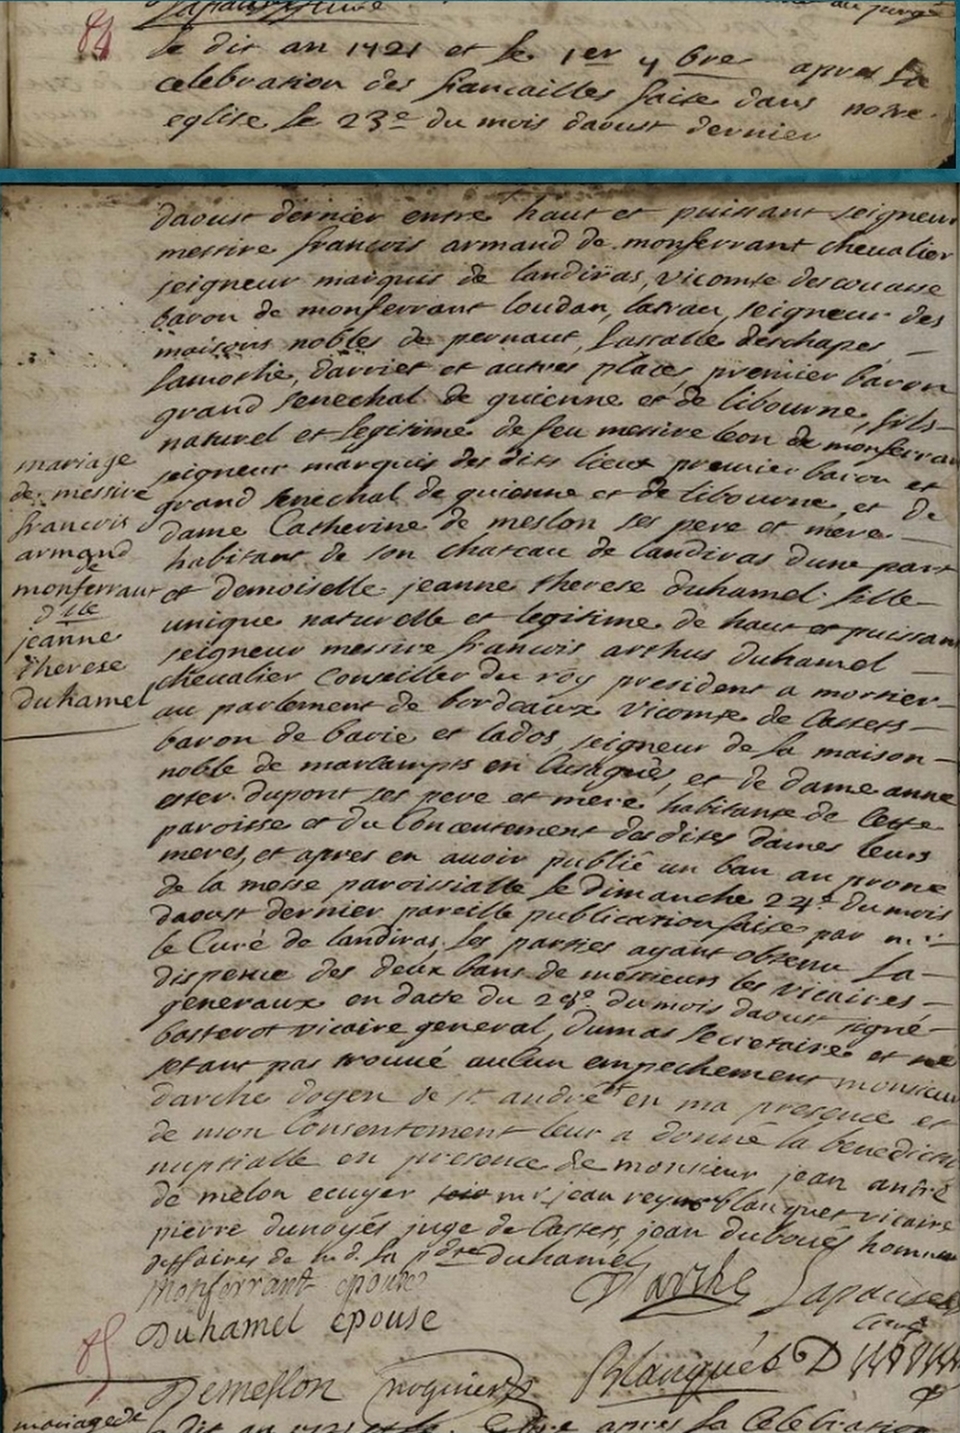 84
Le dit an 1721 et le 1er 7bre apres la
celebration des fiancailles faite dans notre
eglise le 23e du mois daoust dernier
daoust dernier entre haut et puissant seigneur
messire francois armand de monferrant chevalier
seigneur marquis de landiras, vicomte
baron de monferrant loudan, seigneur des
maisons nobles de pernaut, lassalle deschapes
lamothe, darriet et autres places premier baron
grand senechal de guienne et de libourne, fils
naturel et legitime de feu messire leon de monferran
seigneur marquis des dits lieux premier baron et
grand senechal de guienne et de libourne, et de
dame Catherine de meslon ses pere et mere
habitant de son chateau de landiras dune part
et demoiselle jeanne therese duhamel fille
unique naturelle et legitime de haut et puissant
seigneur messire francois arthus duhamel
chevalier Conseiller du roy president a mortier
au parlement de bordeaux vicomte de Castets
baron de barie et lados, seigneur de la maison
noble de marcamps en Cusaguès, et de dame anne
ester dupont ses pere et mere habitante de Cette
paroisse et du Consentement desdites dames leurs
meres, et apres en avoir publié un ban au prone
de la messe paroissialle le dimanche 24e du mois
daoust dernier pareille publication faite par
le Curé de landiras, les parties ayant obtenu la
dispence des deux bans de messieurs les vicaires
generaux en datte du 28e du mois daoust signé
basterot vicaire general, dumas secretaire et ne
setant pas trouvé aucun empechement monsieur
darche doyen de st andré en ma presence et
de mon Consentement leur a donné la benediction
nuptialle en presence de monsieur jean andré
de melon ecuyer mr jean blanquet vicaire
pierre dunoyés juge de Castets, jean duboués homme
daffaires de duhamel
mariage
de messire
francois
armand
de
monferrant
dlle
jeanne
therese
duhamel
Monferrant epoux
Darche
Lapause
Curé
Duhamel epouse
85
Demeslon
Blanqués
mariage de
Le dit an apres la Celebration